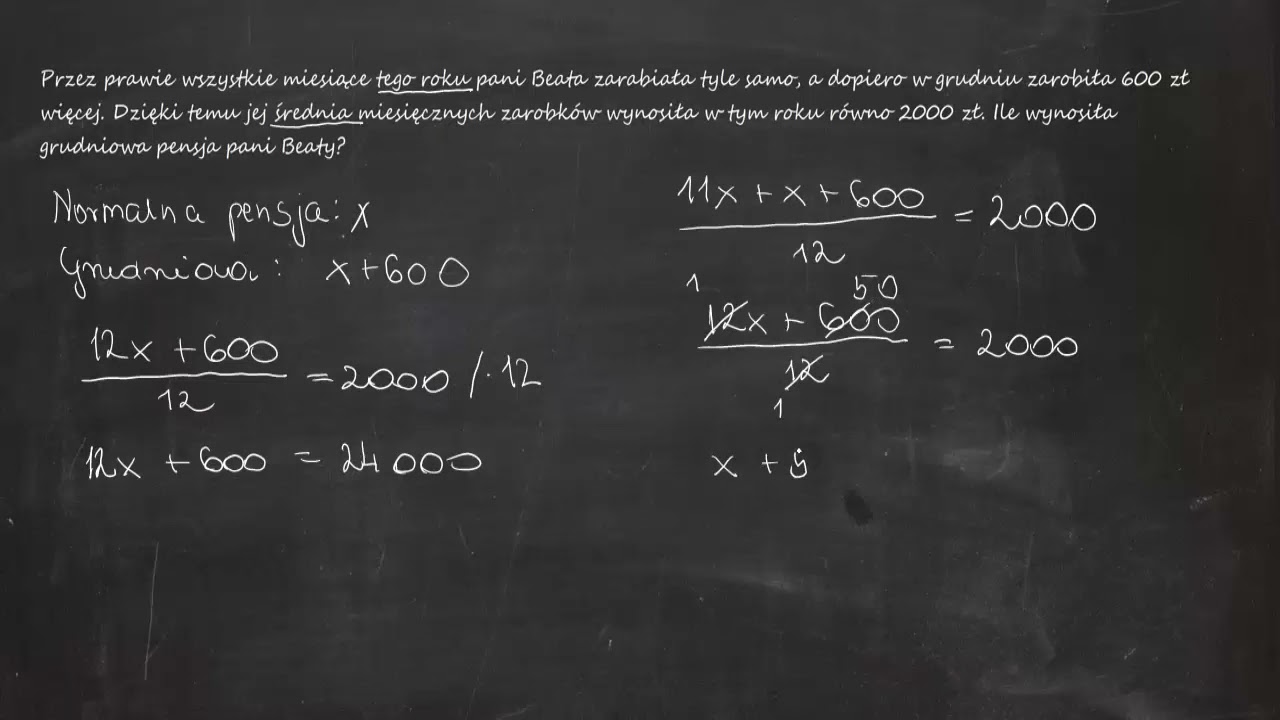 Przez prawie wszystkie miesiące tego roku pani Beata zarabiała tyle samo, a dopiero w grudniu zarobiła 600 zł
więcej. Dzięki temu jej średnia miesięcznych zarobków wynosiła w tym roku równo 2000 zł. Ile wynosiła
grudniowa pensja pani Beaty?
Normalna pensja: x
Grudniowa: x+600
12x + 600
12
= 2000 /·12
12x + 600 = 24 000
11x + x + 600
12
= 2000
1 50
12x + 600
12
1
= 2000
x + 5